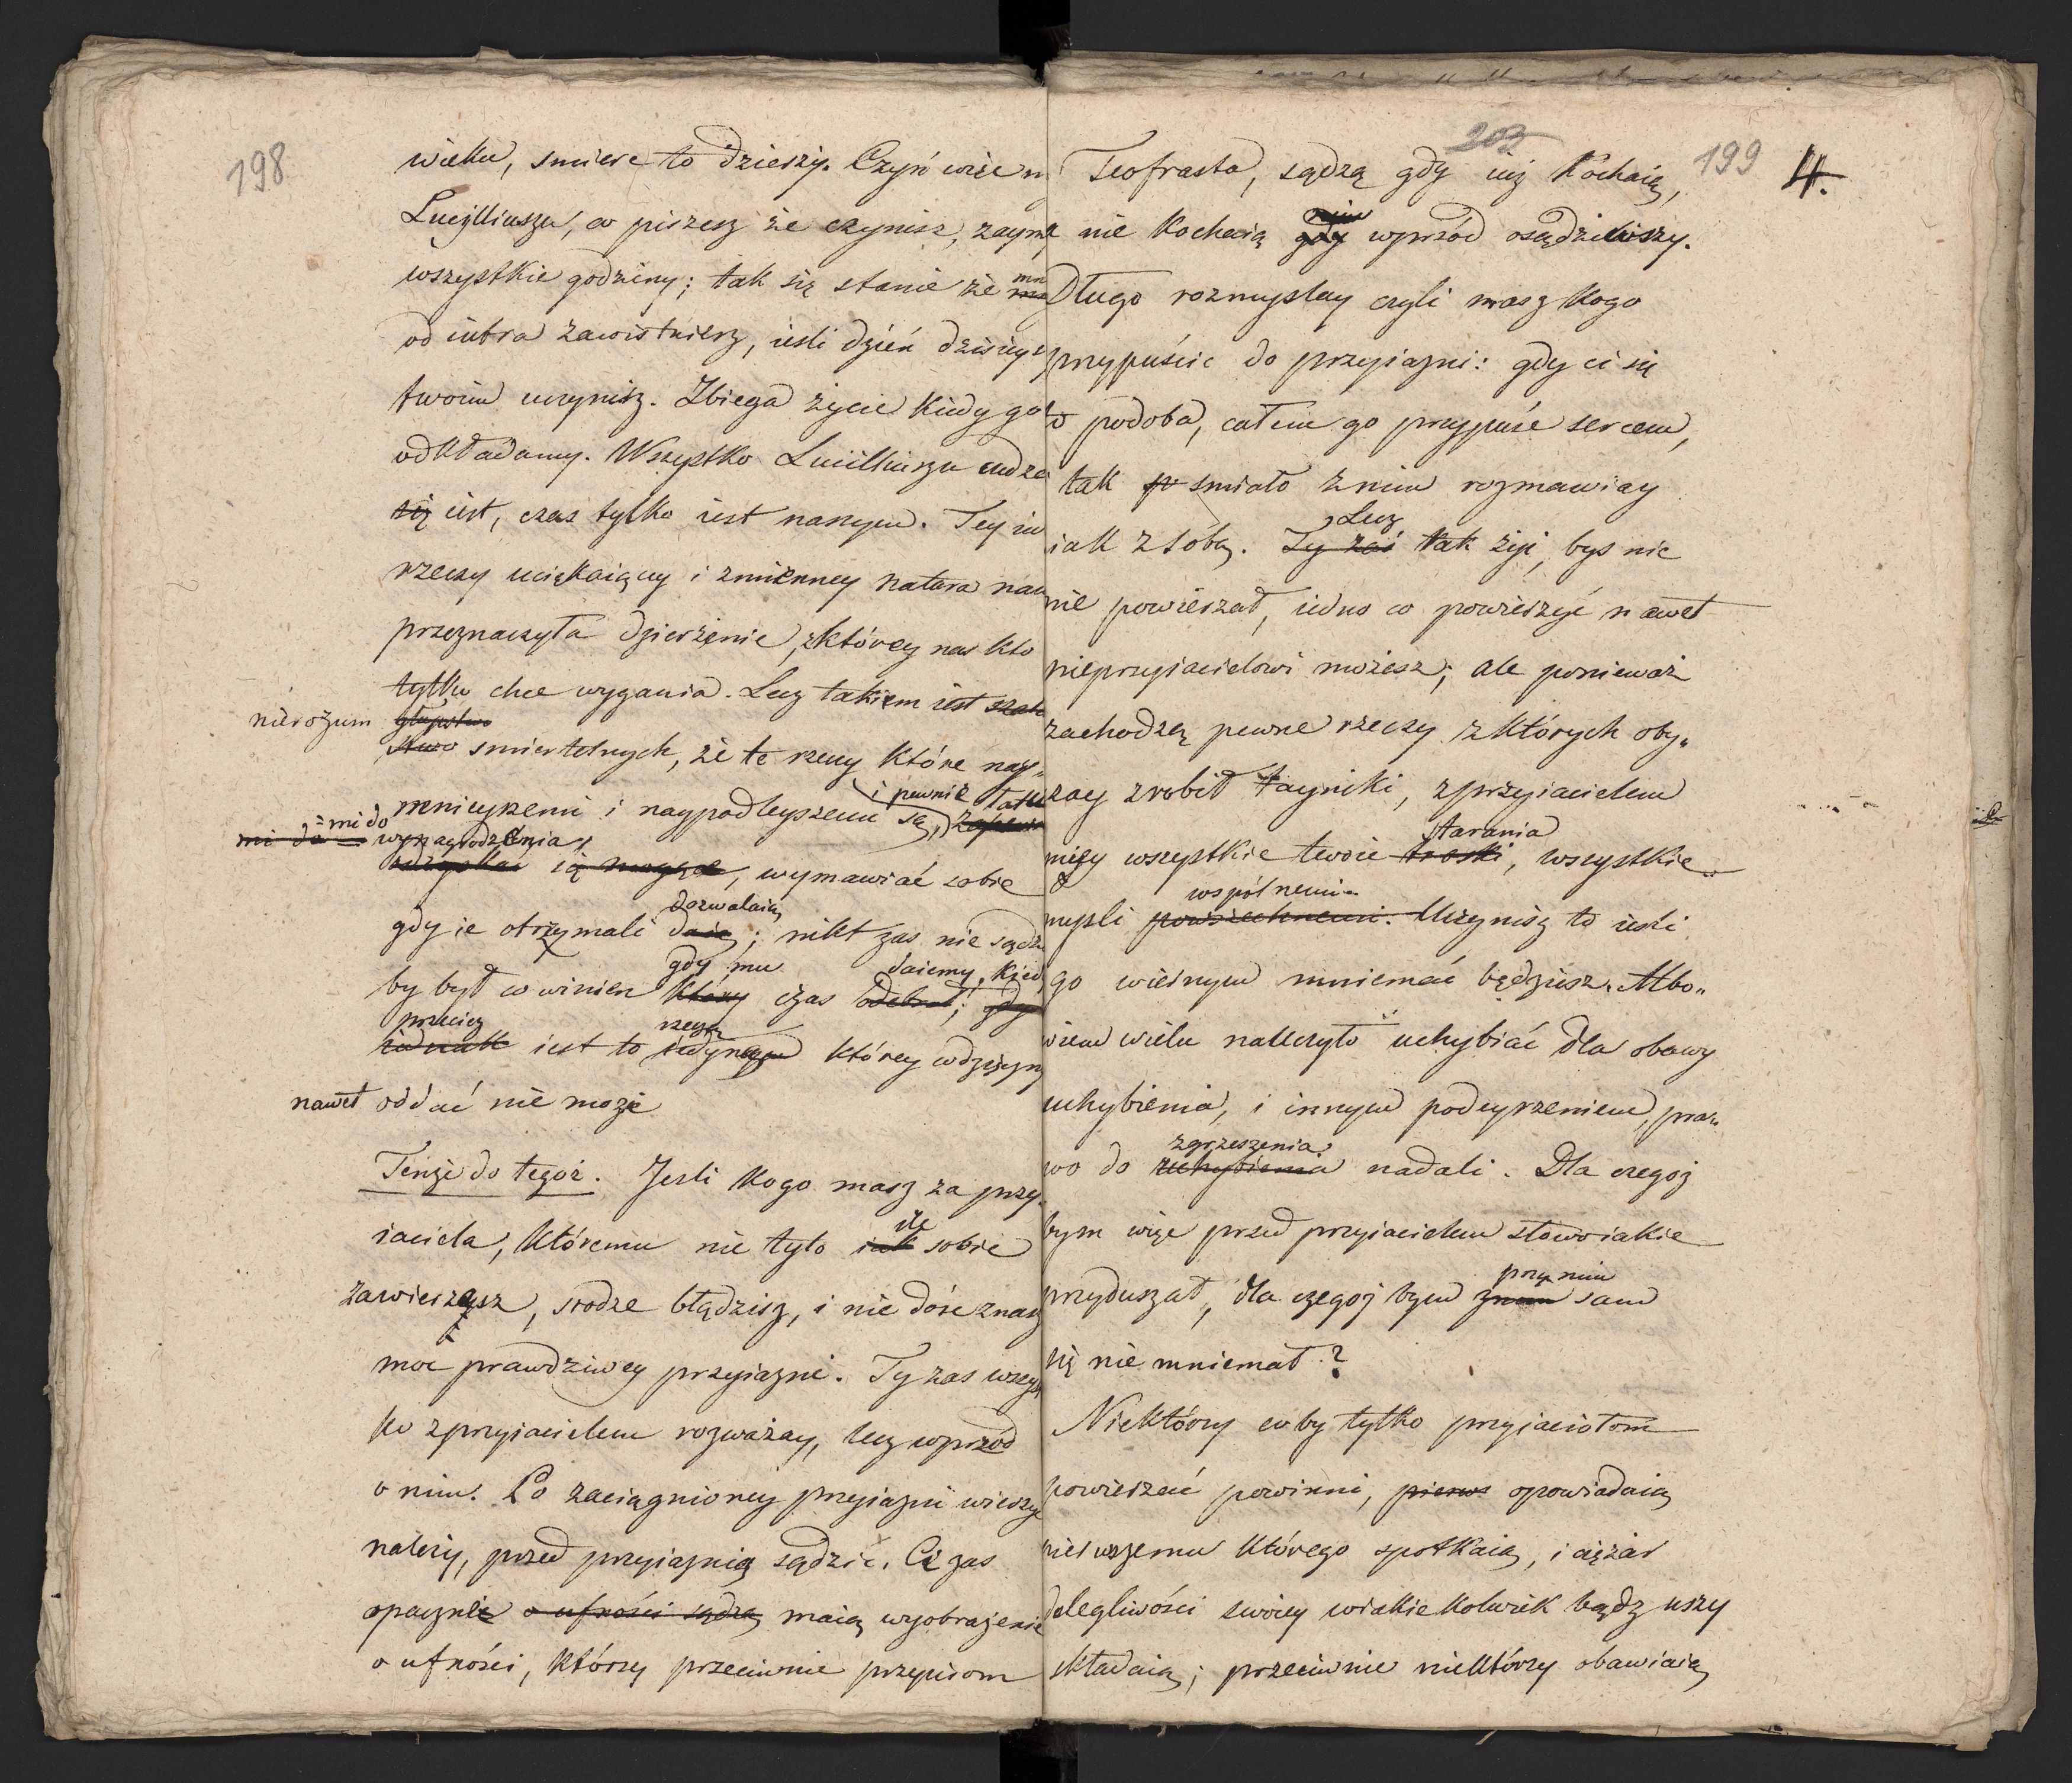 198
wieku, smierc to dzierży. Czyń więc m
Lucylliuszu, co piszesz że czynisz, zaym
wszystkie godziny; tak się stanie że mn
od iutra zawistniesz, iesli dzień dzisieys
twoim uczynisz. Zbiega życie kiedy go
odkładamy. Wszystko Lucilliuszu cudze
się iest, czas tylko iest naszym. Tey ie
rzeczy uciekaiącey i zmienney natura nam
przeznaczyła dzierżenie, z którey nas kto
tylko chce wygania. Lecz takiem iest szale
nierozum głupstwo
stwo smiertelnych, że te rzeczy które nay„
i pewnie łatw
mnieyszemi i naypodleyszemi są,
mi do
mi do wynagrodzenia,
odzyskać się mogące, wymawiać sobie
dozwalaią
gdy ie otrzymali daią; nikt zas nie sądzi
gdy mu daiemy, kied
by był co winien który czas odebrał; gdy
przeciez rzeczą
iednak iest to iedynem którey wdzięczny
nawet oddać nie może
Tenże do tegoż. Jesli kogo masz za przy„
ile
iaciela, któremu nie tyło iak sobie
zawierzysz, srodze błądzisz, i nie dosc znasz
moc prawdziwey przyiazni. Ty zas wszyst
ko z przyiacielem rozważay, lecz wprzód
o nim. Po zaciągnioney przyiazni wierzyć
należy, przed przyiaznią sądzić. Ci zas
opacznie o ufności sądzą maią wyobrażenie
o ufności, którzy przeciwnie przepisom
203 199 4.
Teofrasta, sądzą gdy iuż kochaią,
a nie kochaią gdy wprzód osądziwszy.
Długo rozmyslay czyli masz kogo
przypuścic do przyiazni: gdy ci się
to podoba, całem go przypusc sercem,
tak smiało z nim rozmawiay
Lecz
iak z sobą. Ty zaś tak żyi, bys nic
nie powierzał, iedno co powierzyć nawet
nieprzyiacielowi możesz; ale ponieważ
zachodzą pewne rzeczy z których oby„
czay zrobił tayniki, z przyiacielem
starania
miey wszystkie twoie troski, wszystkie
wspólnemi
mysli powszechnemi. Uczynisz to iesli
go wiernym mniemać będziesz. Albo„
wiem wielu nauczyło uchybiać dla obawy
uchybienia, i innym podeyrzeniem, pra„
zgrzeszenia
wo do uchybienia nadali. Dla czegoż
bym więc przed przyiacielem słowo iakie
przy nim
przyduszał, dla czegoż bym z nim sam
się nie mniemał?
Niektórzy coby tylko przyjaciołom
powierzać powinni, pierws opowiadaią
pierwszemu którego spotkaią, i ciężar
dolegliwości swoiey w iakie kolwiek bądz uszy
składaią; przeciwnie niektórzy obawiaią